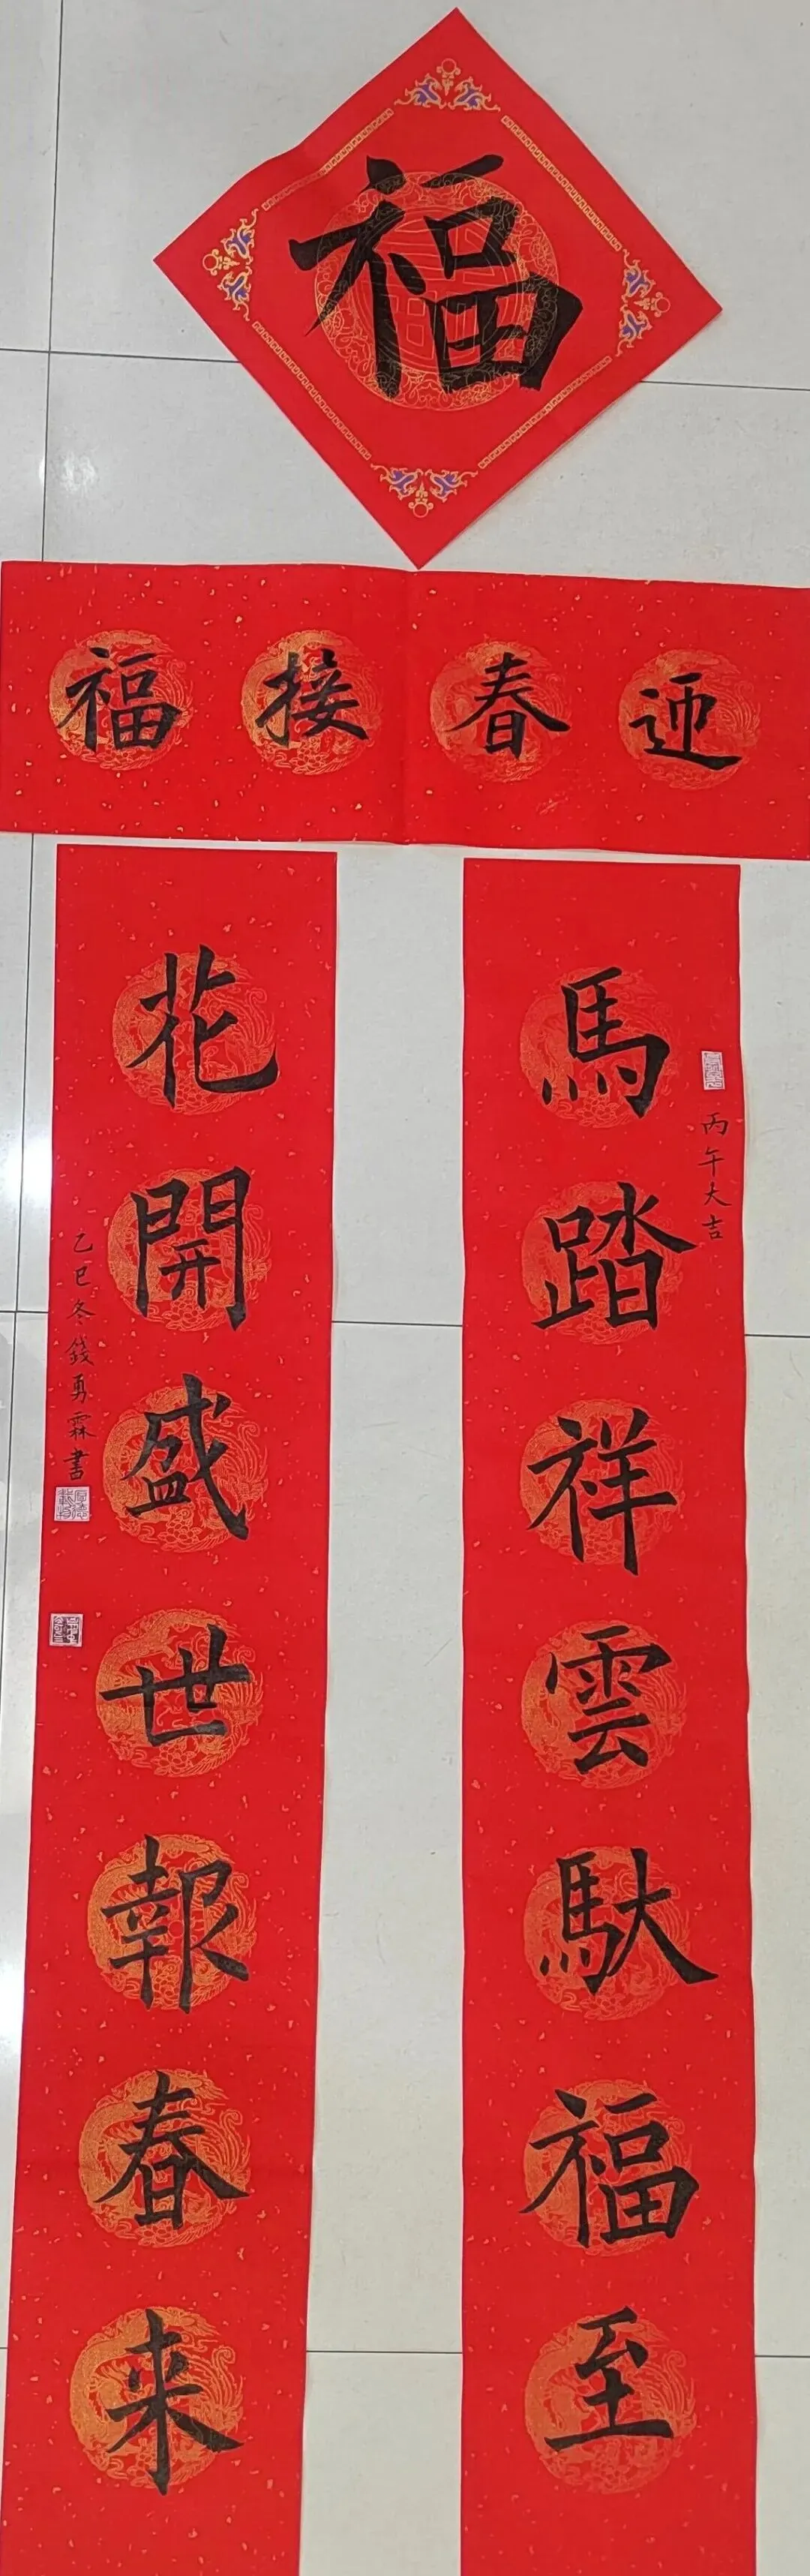 福
迎春接福
馬踏祥雲馱福至
丙午大吉
花開盛世報春来
乙巳冬錢勇霖書